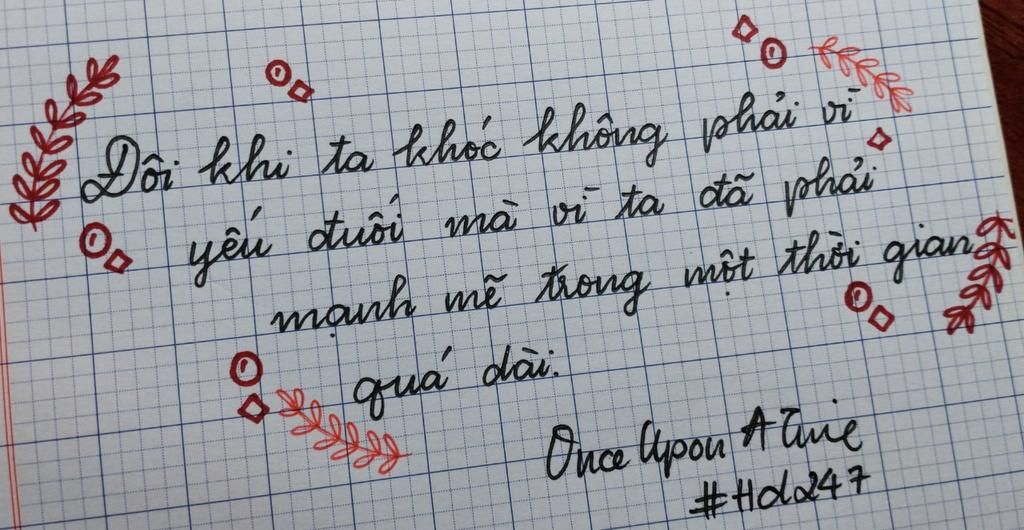 Đôi khi ta khóc không phải vì
yếu đuối mà vì ta đã phải
mạnh mẽ trong một thời gian
quá dài.
Once Upon A Time
#Hd247